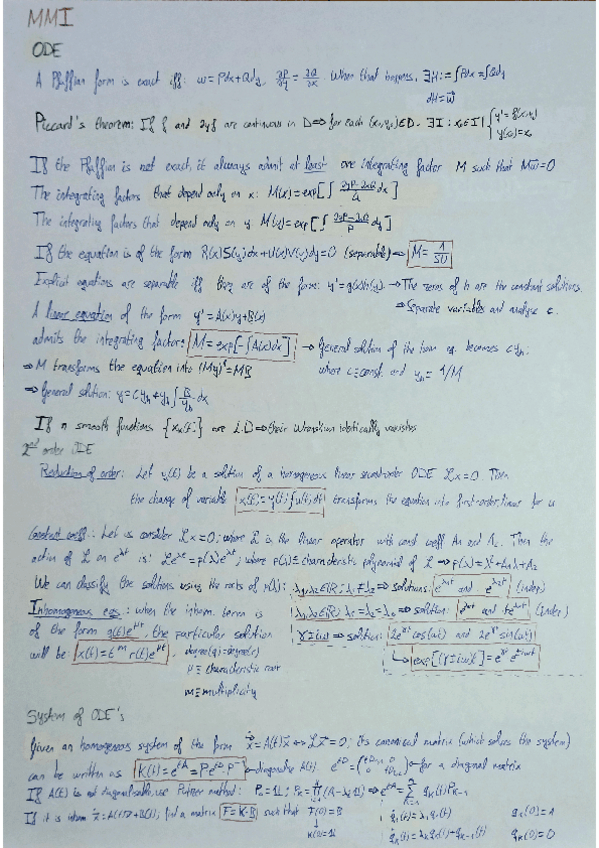 MMI
ODE
A Pfaffian form is exact iff: ω = Pdx+Qdy, ∂P/∂y = ∂Q/∂x. When that happens, ∃H := ∫Pdx = ∫Qdy
dH = ω
Piccard's theorem: If f and ∂yf are continuous in D ⇒ for each (x₀,y₀)∈D ∃I : x₀∈I | { y' = f(x,y)
If the Pfaffian is not exact, it always admit at least one integrating factor M such that
The integrating factors that depend only on x: M(x) = exp[∫ dx]
The integrating factors that depend only on y: M(y) = exp[∫ dy]
If the equation is of the form R(x)S(y)dx + U(x)V(y)dy = 0 (separable) ⇒ M = 1/SU
Explicit equations are separable iff they are of the form: y' = g(x)h(y) → The zeros of h are the constant solutions.
⇒ Separate variables and analyse c.
A linear equation of the form y' = A(x)y + B(x)
admits the integrating factor: M = exp[-∫A(x)dx] → General solution of the hom eq. becomes cyₕ;
where c≡const. and yₕ = 1/M
⇒ M transforms the equation into (My)' = MB
⇒ General solution: y = cyₕ + yₕ∫ B/yₕ dx
If n smooth functions are L.D ⇒ their Wronskian identically vanishes
2nd order ODE
Reduction of order: Let y(t) be a solution of a homogeneous linear second-order ODE Lx = 0. Then
the change of variable x(t) = y(t)∫u(t)dt transforms the equation into first-order, linear for u
Constant coeff.: Let us consider Lx = 0; where L is the linear operator with const coeff A₁ and A₂. Then the
action of L on e^λt is: Le^λt = p(λ)e^λt; where p(λ) ≡ characteristic polynomial of L ⇒ p(λ) = λ²+A₁λ+A₂
We can classify the solutions using the roots of p(λ): λ₁,λ₂∈ℝ; λ₁≠λ₂ ⇒ solutions: e^λ₁t and e^λ₂t (indep)
Inhomogeneous eqs: when the inhom. term is
λ₁,λ₂∈ℝ; λ₁=λ₂=λ₀ ⇒ solution: e^λ₀t and te^λ₀t (indep)
of the form q(t)e^μt, the particular solution
γ±iω ⇒ solution: 2e^γt cos(ωt) and 2e^γt sin(ωt)
will be x(t) = t^m r(t)e^μt. degree(q) = degree(r)
μ ≡ characteristic root
m ≡ multiplicity
System of ODE's
Given an homogeneous system of the form ẋ = A(t)x ↔ Lx = 0; its canonical matrix (which solves the system)
can be written as K(t) = e^tA = Pe^tD P⁻¹ for a diagonal matrix
If A(t) is not diagonalisable, use Putzer method: P₀ = 1L;
If it is inhom find a matrix F = K·B such that F(0) = B
K(0) = 1L
q₁(0) = 1
qₖ(0) = 0